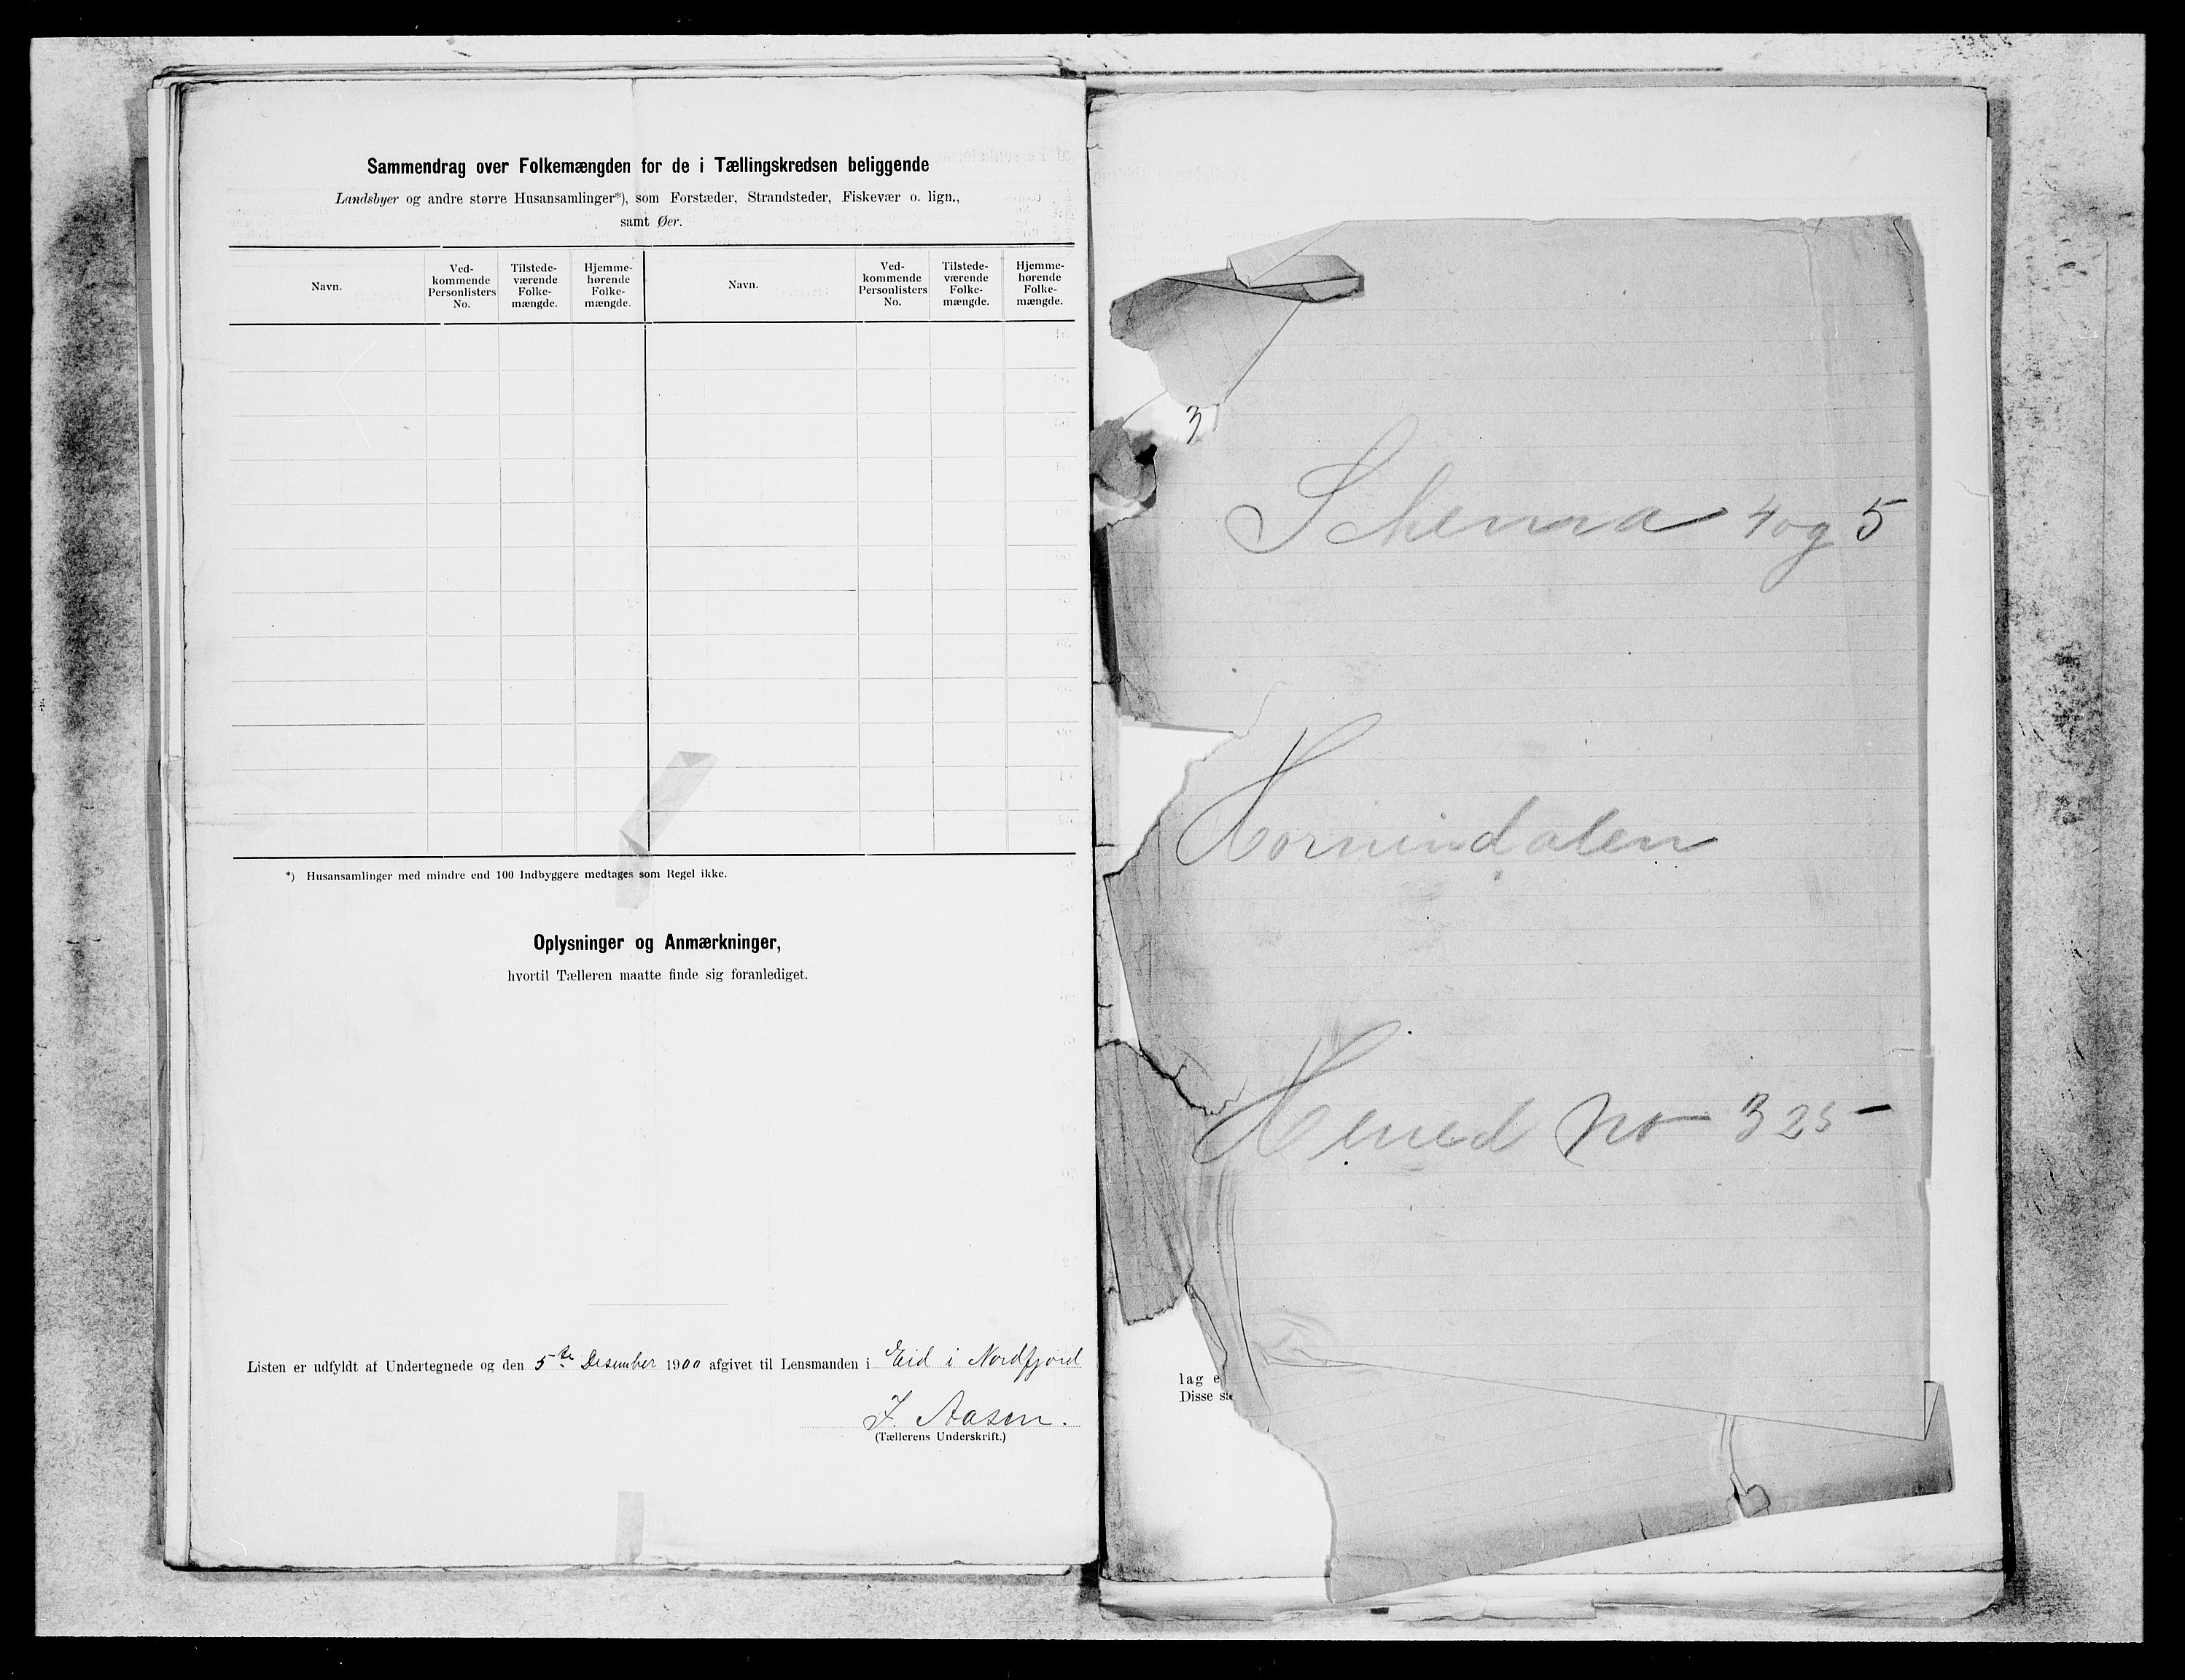 Sammendrag over Folkemængden for de i Tællingskredsen beliggende
Landsbyer og andre større Husansamlinger*), som Forstæder, Strandsteder, Fiskevær o. lign.,
samt Øer.
Navn.
Ved-
kommende
Personlisters
No.
Tilstede-
værende
Folke-
mængde.
Hjemme-
hørende
Folke-
mængde.
Navn.
Ved-
kommende
Personlisters
No.
Tilstede-
værende
Folke-
mængde.
Hjemme-
hørende
Folke-
mængde.
*) Husansamlinger med mindre end 100 Indbyggere medtages som Regel ikke.
Oplysninger og Anmærkninger,
hvortil Tælleren maatte finde sig foranlediget.
Listen er udfyldt af Undertegnede og den 5te Desember 1900 afgivet til Lensmanden i Eid i Nordfjord
J. Aasen.
(Tællerens Underskrift.)
3
Schema 4 og 5
Hornindalen
Herred No 325
lag e
Disse